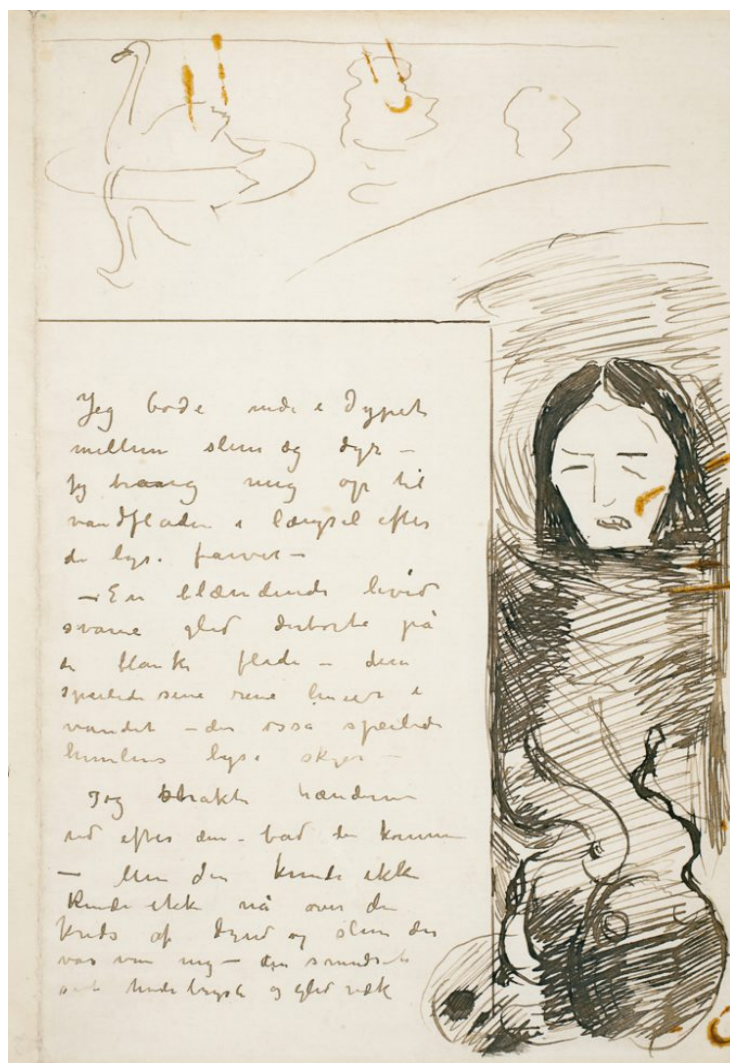 Jeg bode nede i Dypet
mellem slim og dyr –
Jeg trang mig op til
vandfladen i længsel efter
de lyse farver –
– En blændende hvid
svane gled derborte på
de blanke flade – den
speilede sine rene linier i
vandet – der osså speilede
himlens lyse skyer –
Jeg strakte hænderne
ud efter den – bad den komme
– Men den kunde ikke
Kunde ikke nå over den
kreds af dynd og slim der
var om mig – den smudset
sit hvide bryst og gled væk